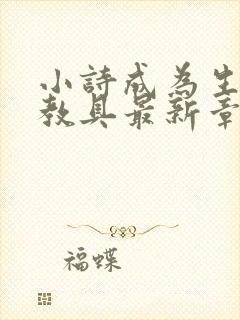 小詩成為生
教具最新章
福蝶